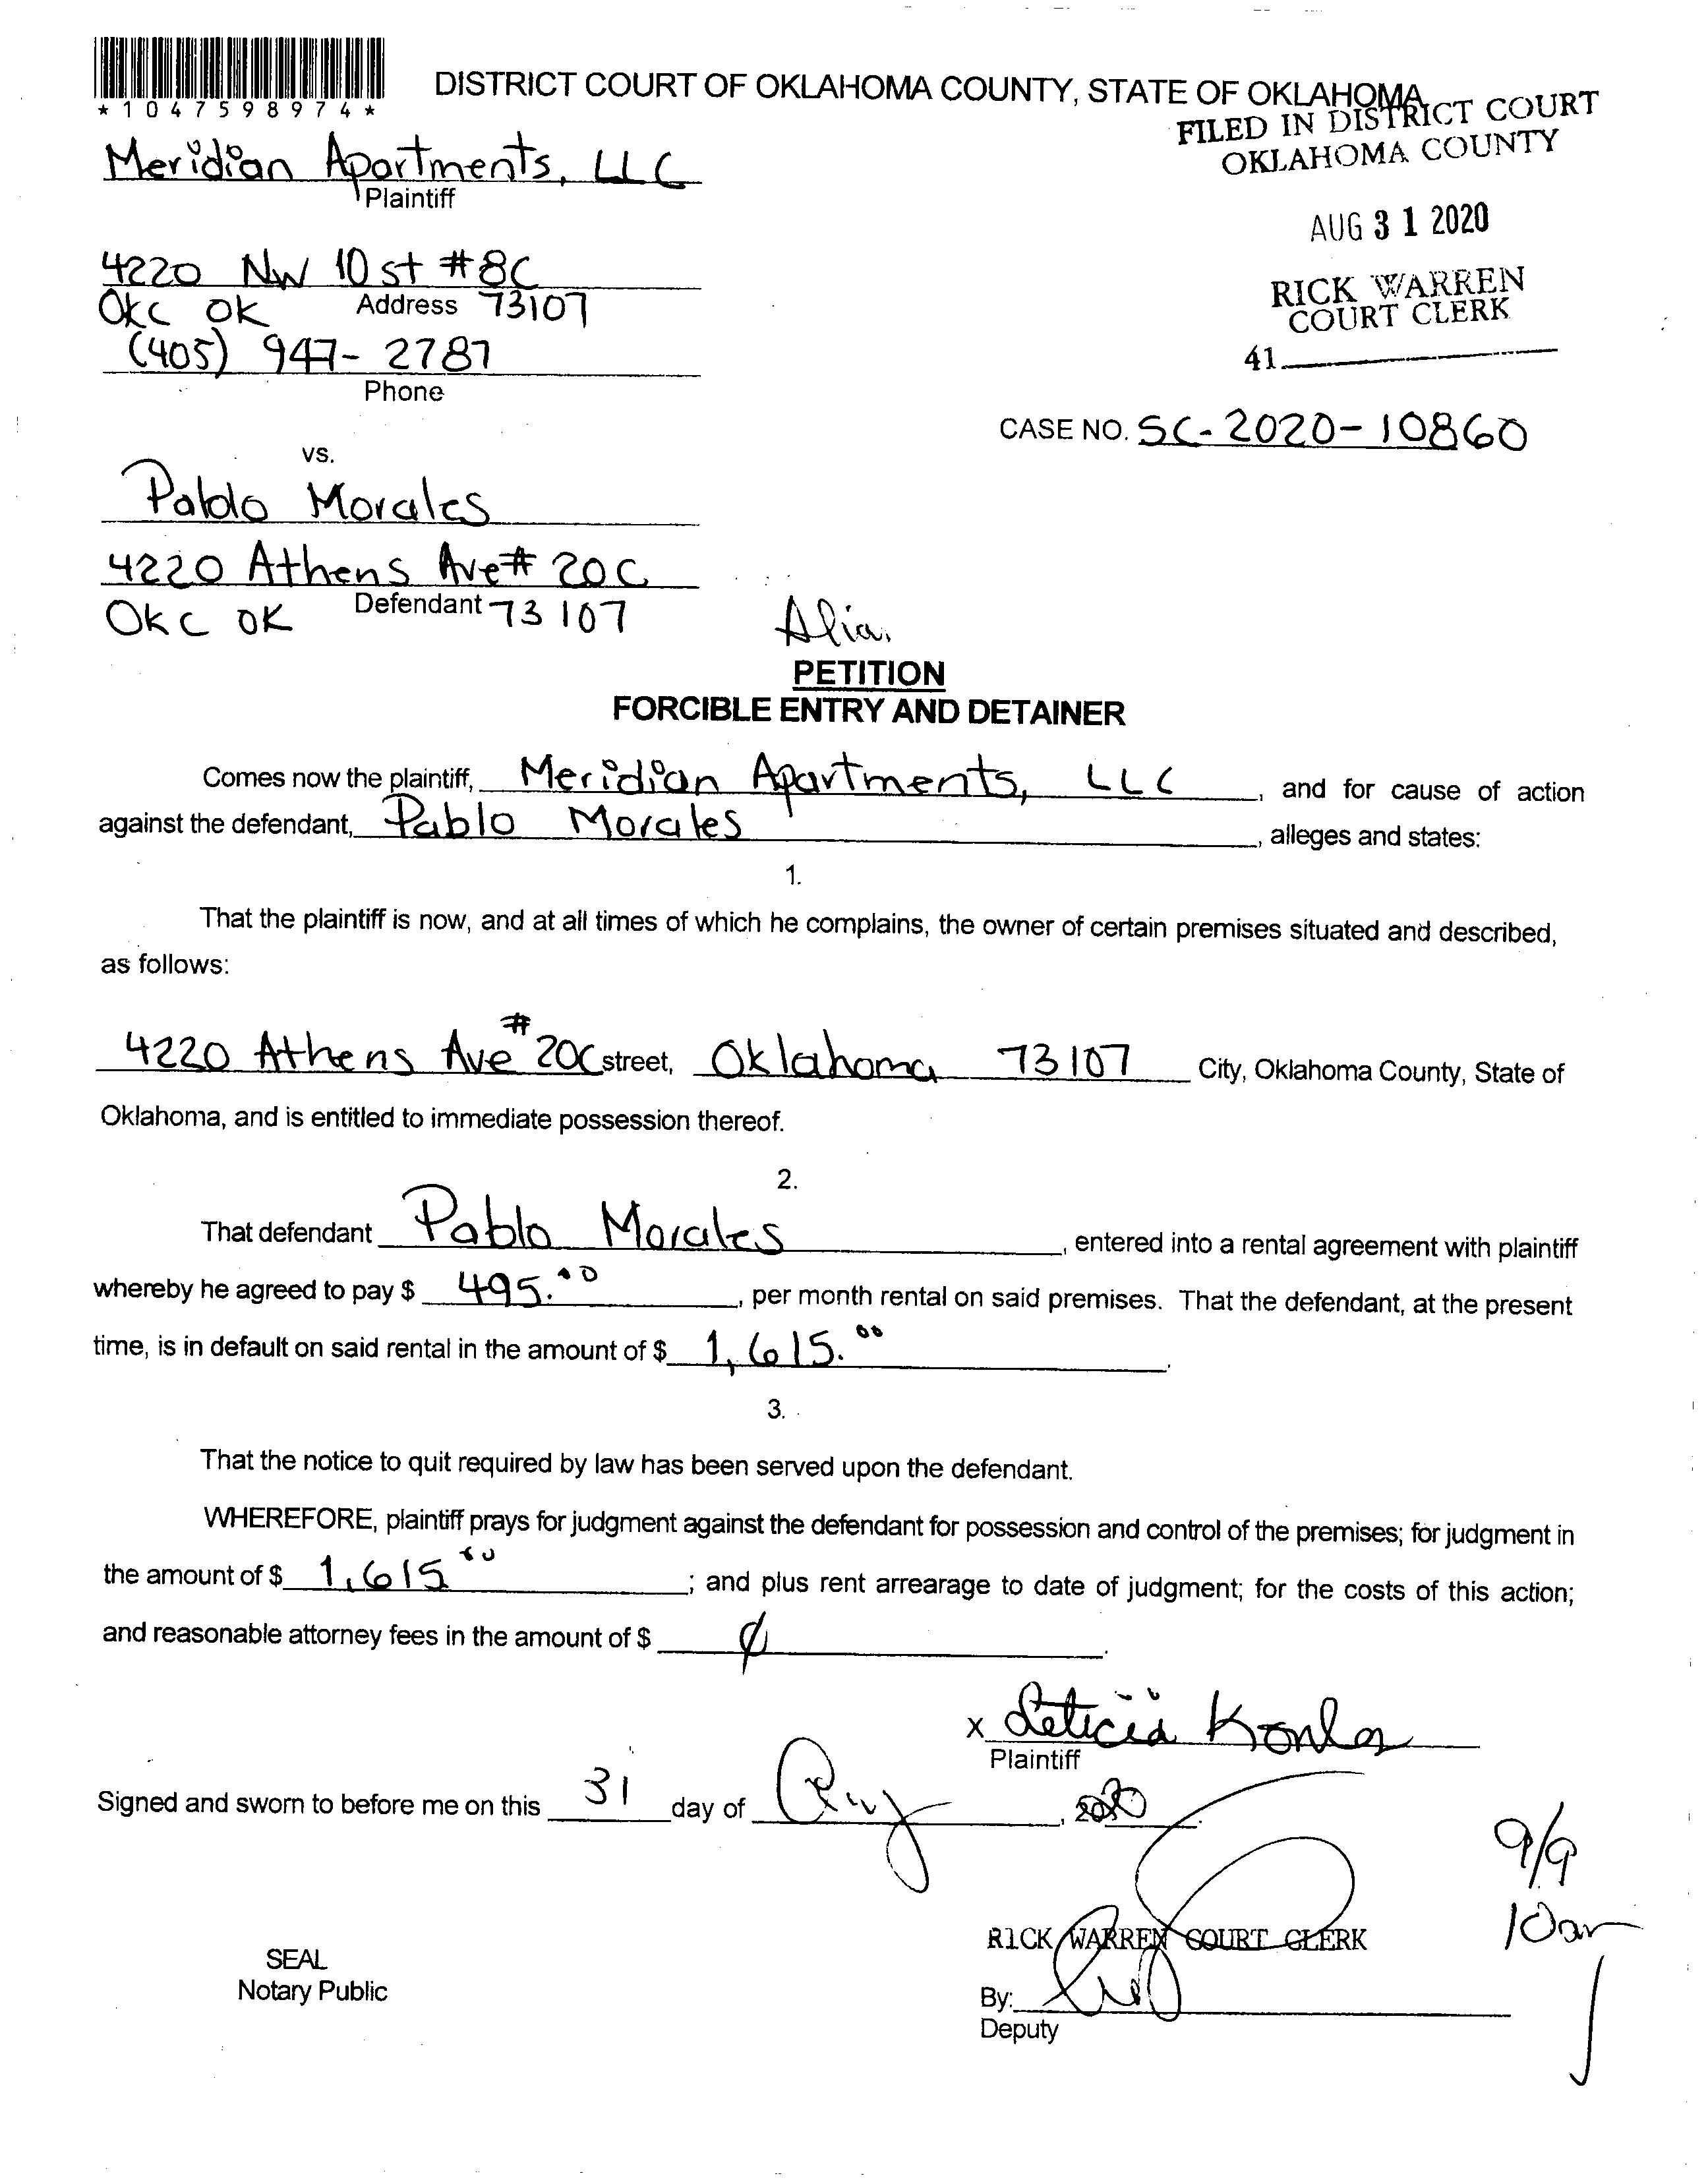 *1047598974*
DISTRICT COURT OF OKLAHOMA COUNTY, STATE OF OKLAHOMA
FILED IN DISTRICT COURT
OKLAHOMA COUNTY
Meridian Apartments, LLC
Plaintiff
AUG 31 2020
4220 NW 10 st #8C
Address
OKC OK 73107
RICK WARREN
COURT CLERK
(405) 947-2787
41
Phone
CASE NO. SC-2020-10860
vs.
Pablo Morales
4220 Athens Ave# 20C
Defendant
OKC OK 73107
Alia.
PETITION
FORCIBLE ENTRY AND DETAINER
Comes now the plaintiff, Meridian Apartments, LLC, and for cause of action
against the defendant, Pablo Morales, alleges and states:
1.
That the plaintiff is now, and at all times of which he complains, the owner of certain premises situated and described,
as follows:
4220 Athens Ave #20C street, Oklahoma 73107 City, Oklahoma County, State of
Oklahoma, and is entitled to immediate possession thereof.
2.
That defendant Pablo Morales, entered into a rental agreement with plaintiff
whereby he agreed to pay $ 495.00, per month rental on said premises. That the defendant, at the present
time, is in default on said rental in the amount of $ 1,615.00.
3.
That the notice to quit required by law has been served upon the defendant.
WHEREFORE, plaintiff prays for judgment against the defendant for possession and control of the premises; for judgment in
the amount of $ 1,615.00; and plus rent arrearage to date of judgment; for the costs of this action;
and reasonable attorney fees in the amount of $ ∅.
x Leticia
Plaintiff
Signed and sworn to before me on this 31 day of Aug, 2020.
9/9
10am
RICK WARREN COURT CLERK
SEAL
Notary Public
By:
Deputy